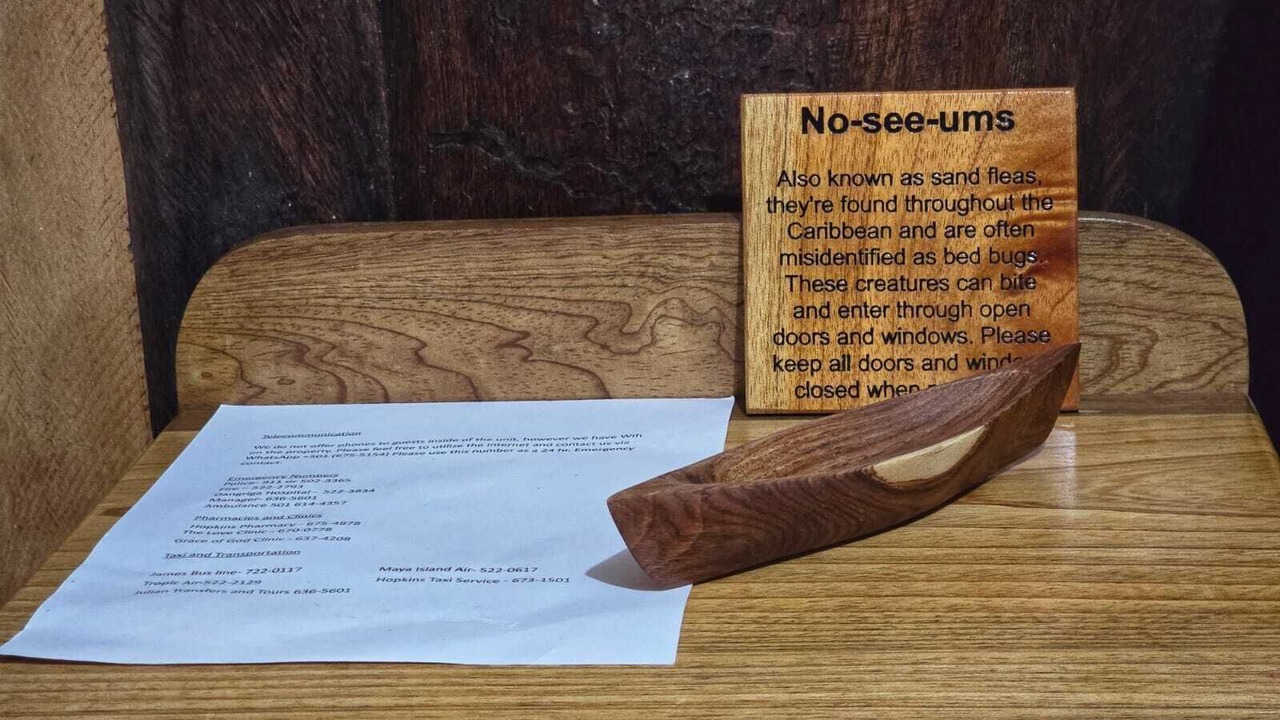 No-see-ums
Also known as sand fleas,
they're found throughout the
Caribbean and are often
misidentified as bed bugs.
These creatures can bite
and enter through open
doors and windows. Please
keep all doors and
closed when
Telecommunication
We do not offer phones to guests inside of the unit, however we have Wifi
on the property. Please feel free to utilize the internet and contact us via
WhatsApp +501 (675-5154) Please use this number as a 24 hr. Emergency
contact.
Emergency Numbers
Police- 911 or 502-3365
Fire – 522-3793
Dangriga Hospital - 522-3834
Manager- 636-5601
Ambulance 501 614-4357
Pharmacies and Clinics
Hopkins Pharmacy - 675-4878
The Love Clinic - 670-0778
Grace of God Clinic - 637-4208
Taxi and Transportation
James Bus line- 722-0117
Maya Island Air- 522-0617
Tropic Air-522-2129
Hopkins Taxi Service - 673-1501
Julian Transfers and Tours 636-5601